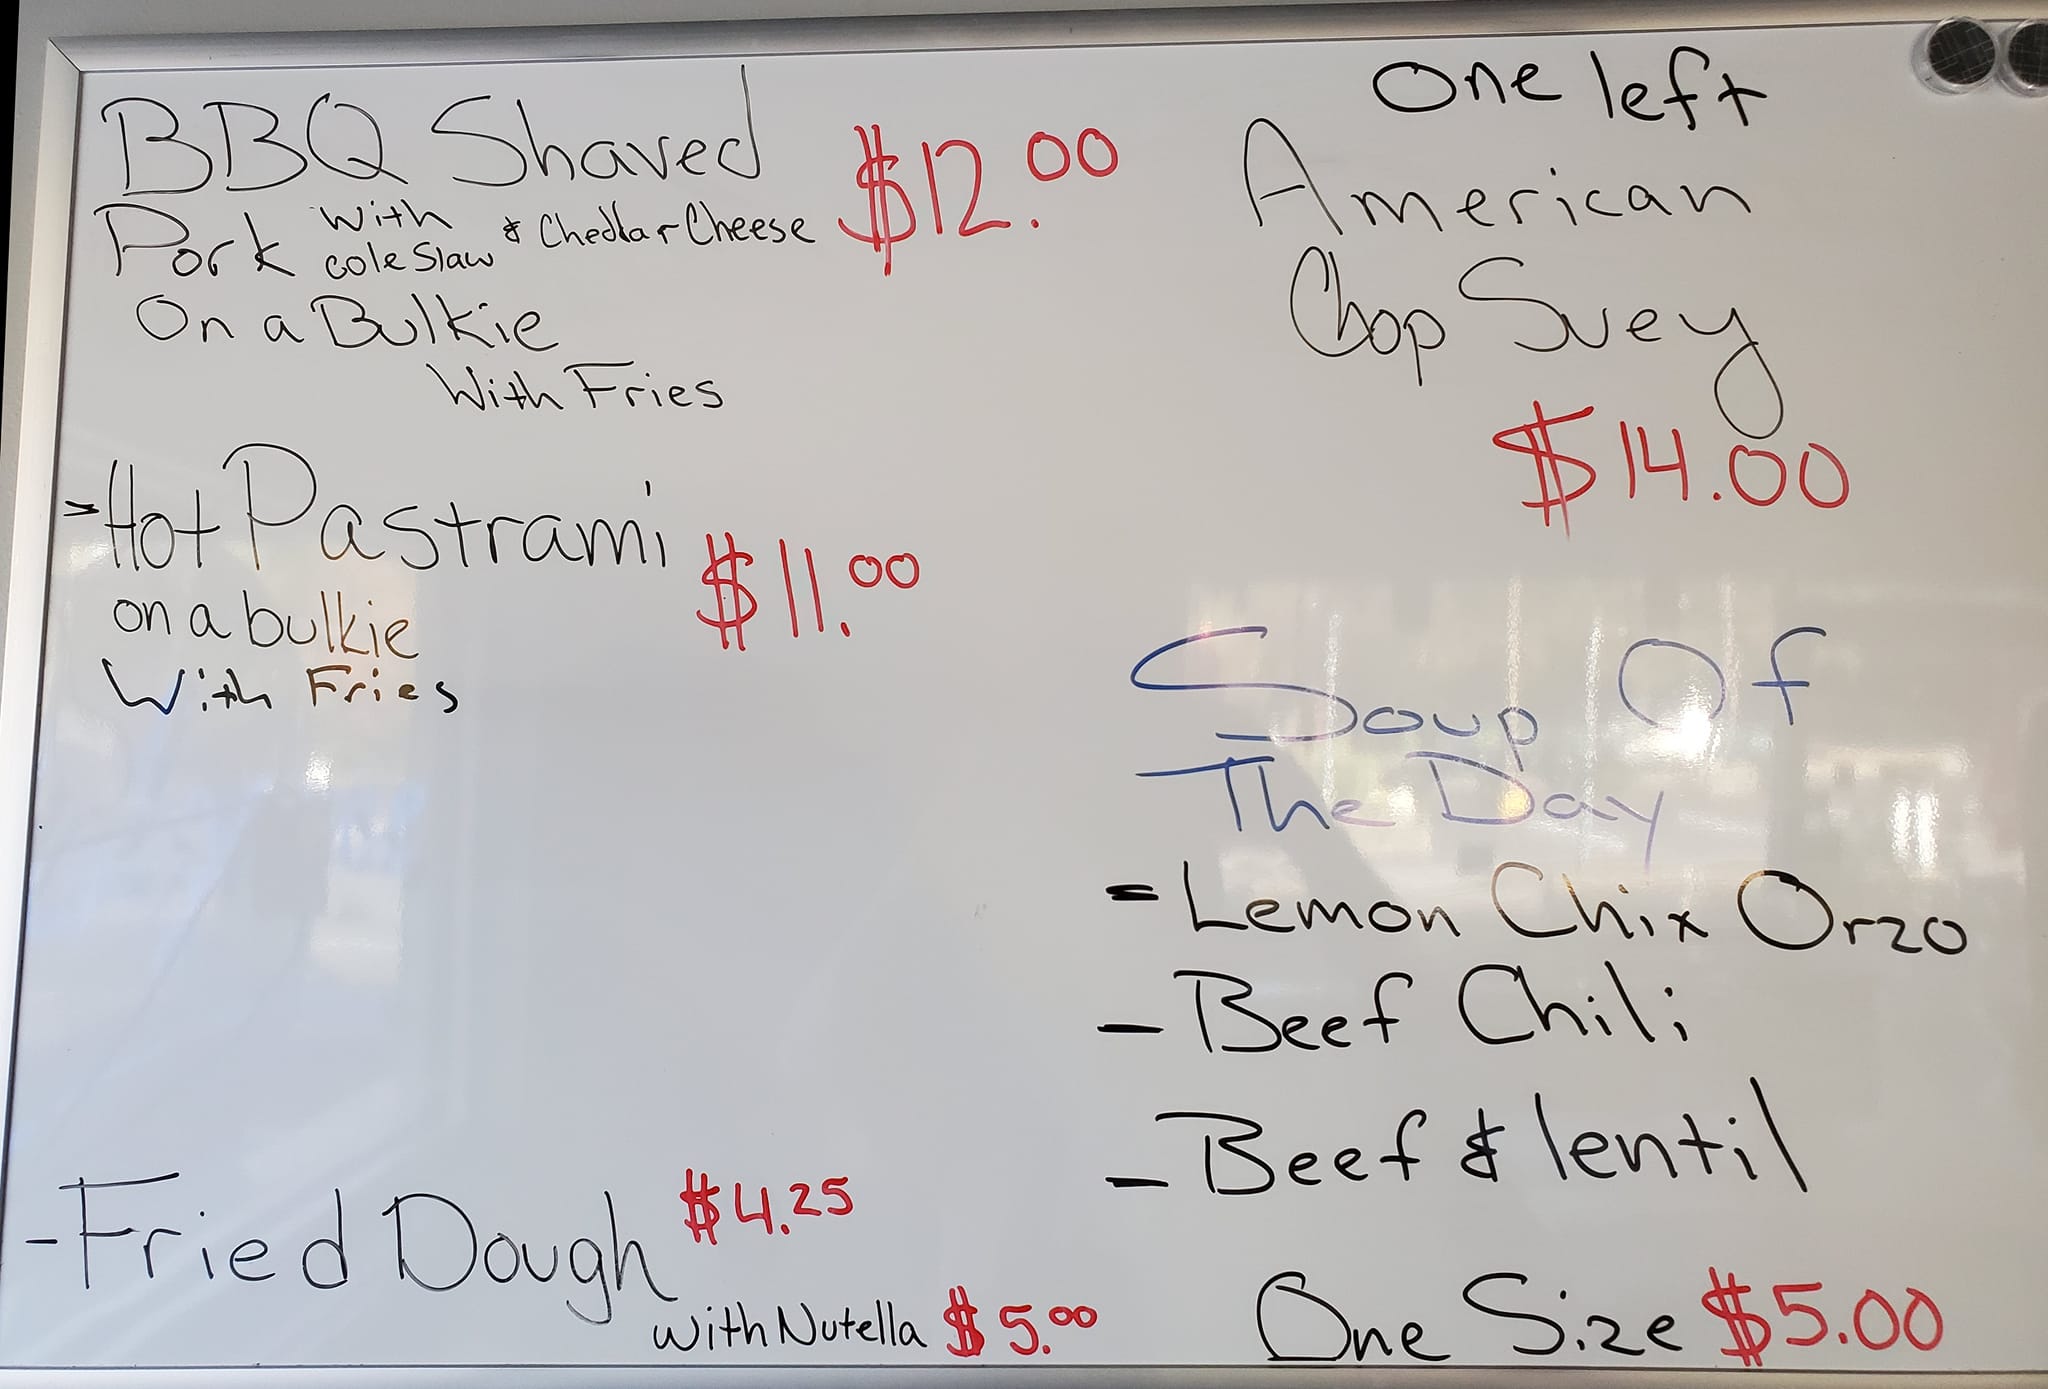 BBQ Shaved $12.00
Pork with coleslaw & Cheddar Cheese
On a Bulkie
With Fries
- Hot Pastrami $11.00
on a bulkie
With Fries
- Fried Dough $4.25
with Nutella $5.00
One left
American
Chop Suey
$14.00
Soup Of
The Day
- Lemon Chix Orzo
- Beef Chili
- Beef & lentil
One Size $5.00